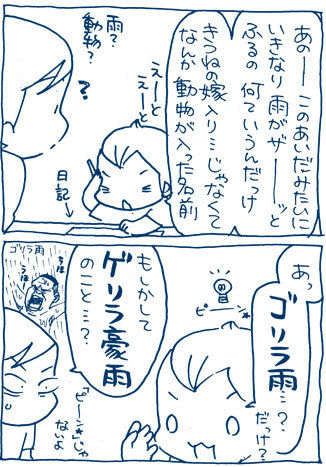 あのーこのあいだみたいに
いきなり雨がザーーッと
ふるの何ていうんだっけ
きつねの嫁入り…じゃなくて
なんか動物が入った名前
えーと
えーと
雨?
動物?
?
日記
あっ
ゴリラ雨…?
だっけ?
ピーン
もしかして
ゲリラ豪雨
のこと…?
ゴリラ雨
うほ
うほ
"ピーン"じゃ
ないよ